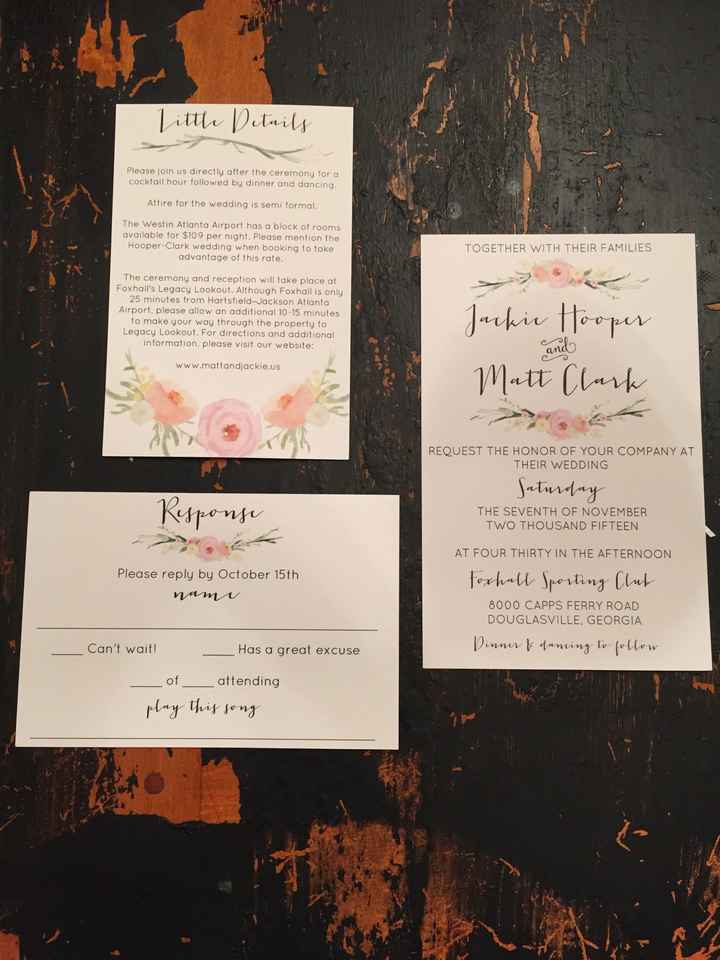 Little Details
Please join us directly after the ceremony for a
cocktail hour followed by dinner and dancing.
Attire for the wedding is semi formal.
The Westin Atlanta Airport has a block of rooms
available for $109 per night. Please mention the
Hooper-Clark wedding when booking to take
advantage of this rate.
The ceremony and reception will take place at
Foxhall's Legacy Lookout. Although Foxhall is only
25 minutes from Hartsfield–Jackson Atlanta
Airport, please allow an additional 10-15 minutes
to make your way through the property to
Legacy Lookout. For directions and additional
information, please visit our website:
www.mattandjackie.us
TOGETHER WITH THEIR FAMILIES
Jackie Hooper
and
Matt Clark
REQUEST THE HONOR OF YOUR COMPANY AT
THEIR WEDDING
Saturday
THE SEVENTH OF NOVEMBER
TWO THOUSAND FIFTEEN
AT FOUR THIRTY IN THE AFTERNOON
Foxhall Sporting Club
8000 CAPPS FERRY ROAD
DOUGLASVILLE, GEORGIA
Dinner & dancing to follow
Response
Please reply by October 15th
name
____ Can't wait! ____ Has a great excuse
____ of ____ attending
play this song